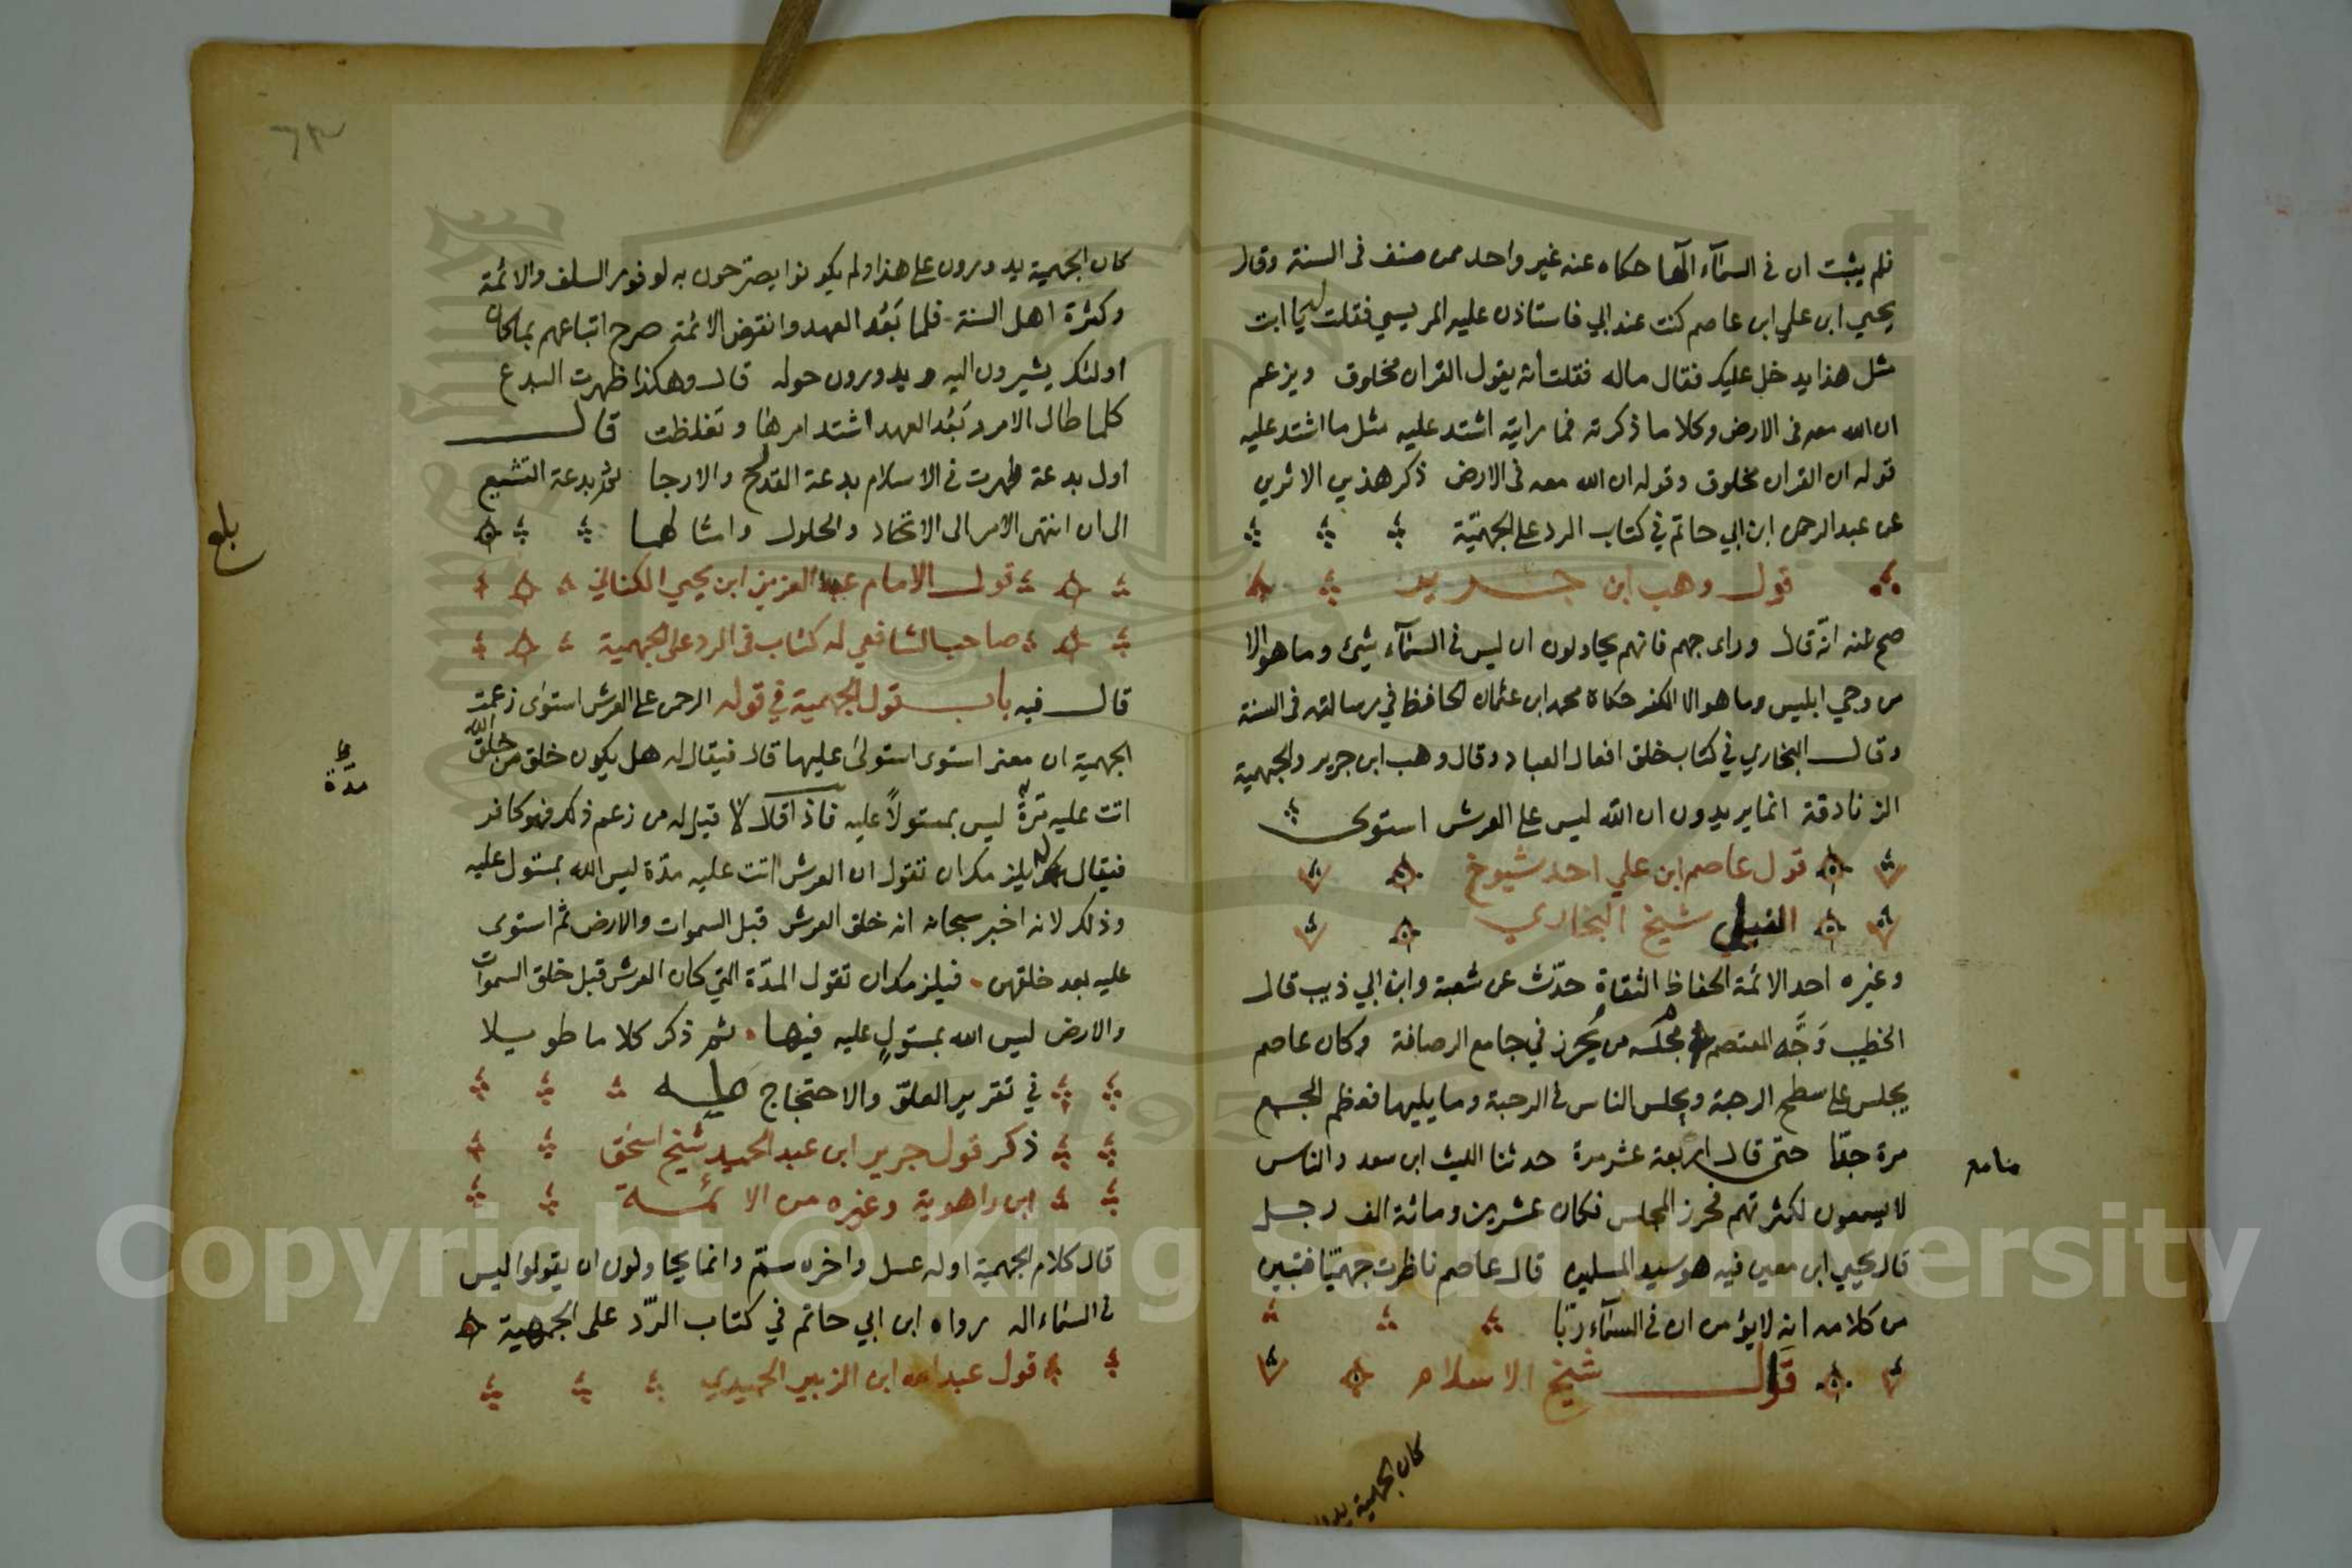 فلم يثبت ان في السمآء الٓها حكاه عنه غير واحد ممن صنف في السنة وقال
يحيي ابن علي ابن عاصم كنت عند ابي فاستاذن عليه المريسي فقلت له يا ابت
مثل هذا يدخل عليك فقال ماله فقلت انه يقول القران مخلوق ويزعم
ان الله معه في الارض وكلاما ذكرته فما رايته اشتد عليه مثل ما اشتد عليه
قوله ان القران مخلوق وقوله ان الله معه في الارض ذكر هذين الاثرين
عن عبد الرحمن ابن ابي حاتم في كتاب الرد على الجهميّة
قول وهب ابن جرير
صح عنه انّه قال وراى جهم فانهم يحاولون ان ليس في السمآء شيئ وما هو الا
من وحي ابليس وما هو الا الكفر حكاه محمد ابن عثمان الحافظ في رسالته في السنة
وقال البخاري في كتاب خلق افعال العباد وقال وهب ابن جرير والجهمية
الزنادقة انما يريدون ان الله ليس على العرش استوى
قول عاصم ابن علي احد شيوخ
شيخ البخاري
وغيره احد الائمة الحفاظ الثقاة حدّث عن شعبة وابن ابي ذيب قال
الخطيب وَجَّه المعتصم من يحرز في جامع الرصافة وكان عاصم
يجلس على سطح الرحبة ويجلس الناس في الرحبة وما يليها فعظم الجمع
مرة جدّا حتى قال اربعة عشر مرة حدثنا الليث ابن سعد والناس
منامع
لا يسمعون لكثرتهم فحرز المجلس فكان عشرين ومائة الف رجل
قال يحيي ابن معين فيه هو سيد المسلمين قال عاصم ناظرت جهميّا فتبين
من كلامه انه لا يؤمن ان في السمآء ربّا
قول شيخ الاسلام
كان الجهمية
٦٣
كان الجهمية يدورون على هذا ولم يكونوا يصرحون به لوفور السلف والائمة
وكثرة اهل السنة فلما بَعُد العهد وانقرض الائمة صرح اتباعهم بما كان
اولئك يشيرون اليه ويدورون حوله قال وهكذا ظهرت البدع
كلما طال الامر وبَعُد العهد اشتد امرها وتغلظت قال
اول بدعة ظهرت في الاسلام بدعة القدر والارجا ثم بدعة التشيع
الى ان انتهى الامر الى الاتحاد والحلول وامثالهما
بلغ
قول الامام عبد العزيز ابن يحيي الكناني
صاحب الشافعي له كتاب في الرد على الجهمية
قال فيه باب قول الجهمية في قوله الرحمن على العرش استوى زعمت
الجهمية ان معنى استوى استولى عليها قال فيقال له هل يكون خلق من خلق الله
مدة
اتت عليه مدة ليس بمستولاً عليه فاذا قال لا قيل له من زعم ذلك فهو كافر
فيقال له يلزمك ان تقول ان العرش اتت عليه مدّة ليس الله بمستول عليه
وذلك لانه اخبر سبحانه انه خلق العرش قبل السموات والارض ثم استوى
عليه بعد خلقهن فيلزمك ان تقول المدّة التي كان العرش قبل خلق السموات
والارض ليس الله بمستولٍ عليه فيها ثم ذكر كلاما طويلا
في تقرير العلوّ والاحتجاج عليه
ذكر قول جرير ابن عبد الحميد شيخ اسحق
ابن راهوية وغيره من الائمة
قال كلام الجهمية اوله عسل واخره سمّ وانما يحاولون ان يقولوا ليس
في السماء اله رواه ابن ابي حاتم في كتاب الرّد على الجهمية
قول عبد الله ابن الزبير الحميدي
Copyright © King Saud University
1957